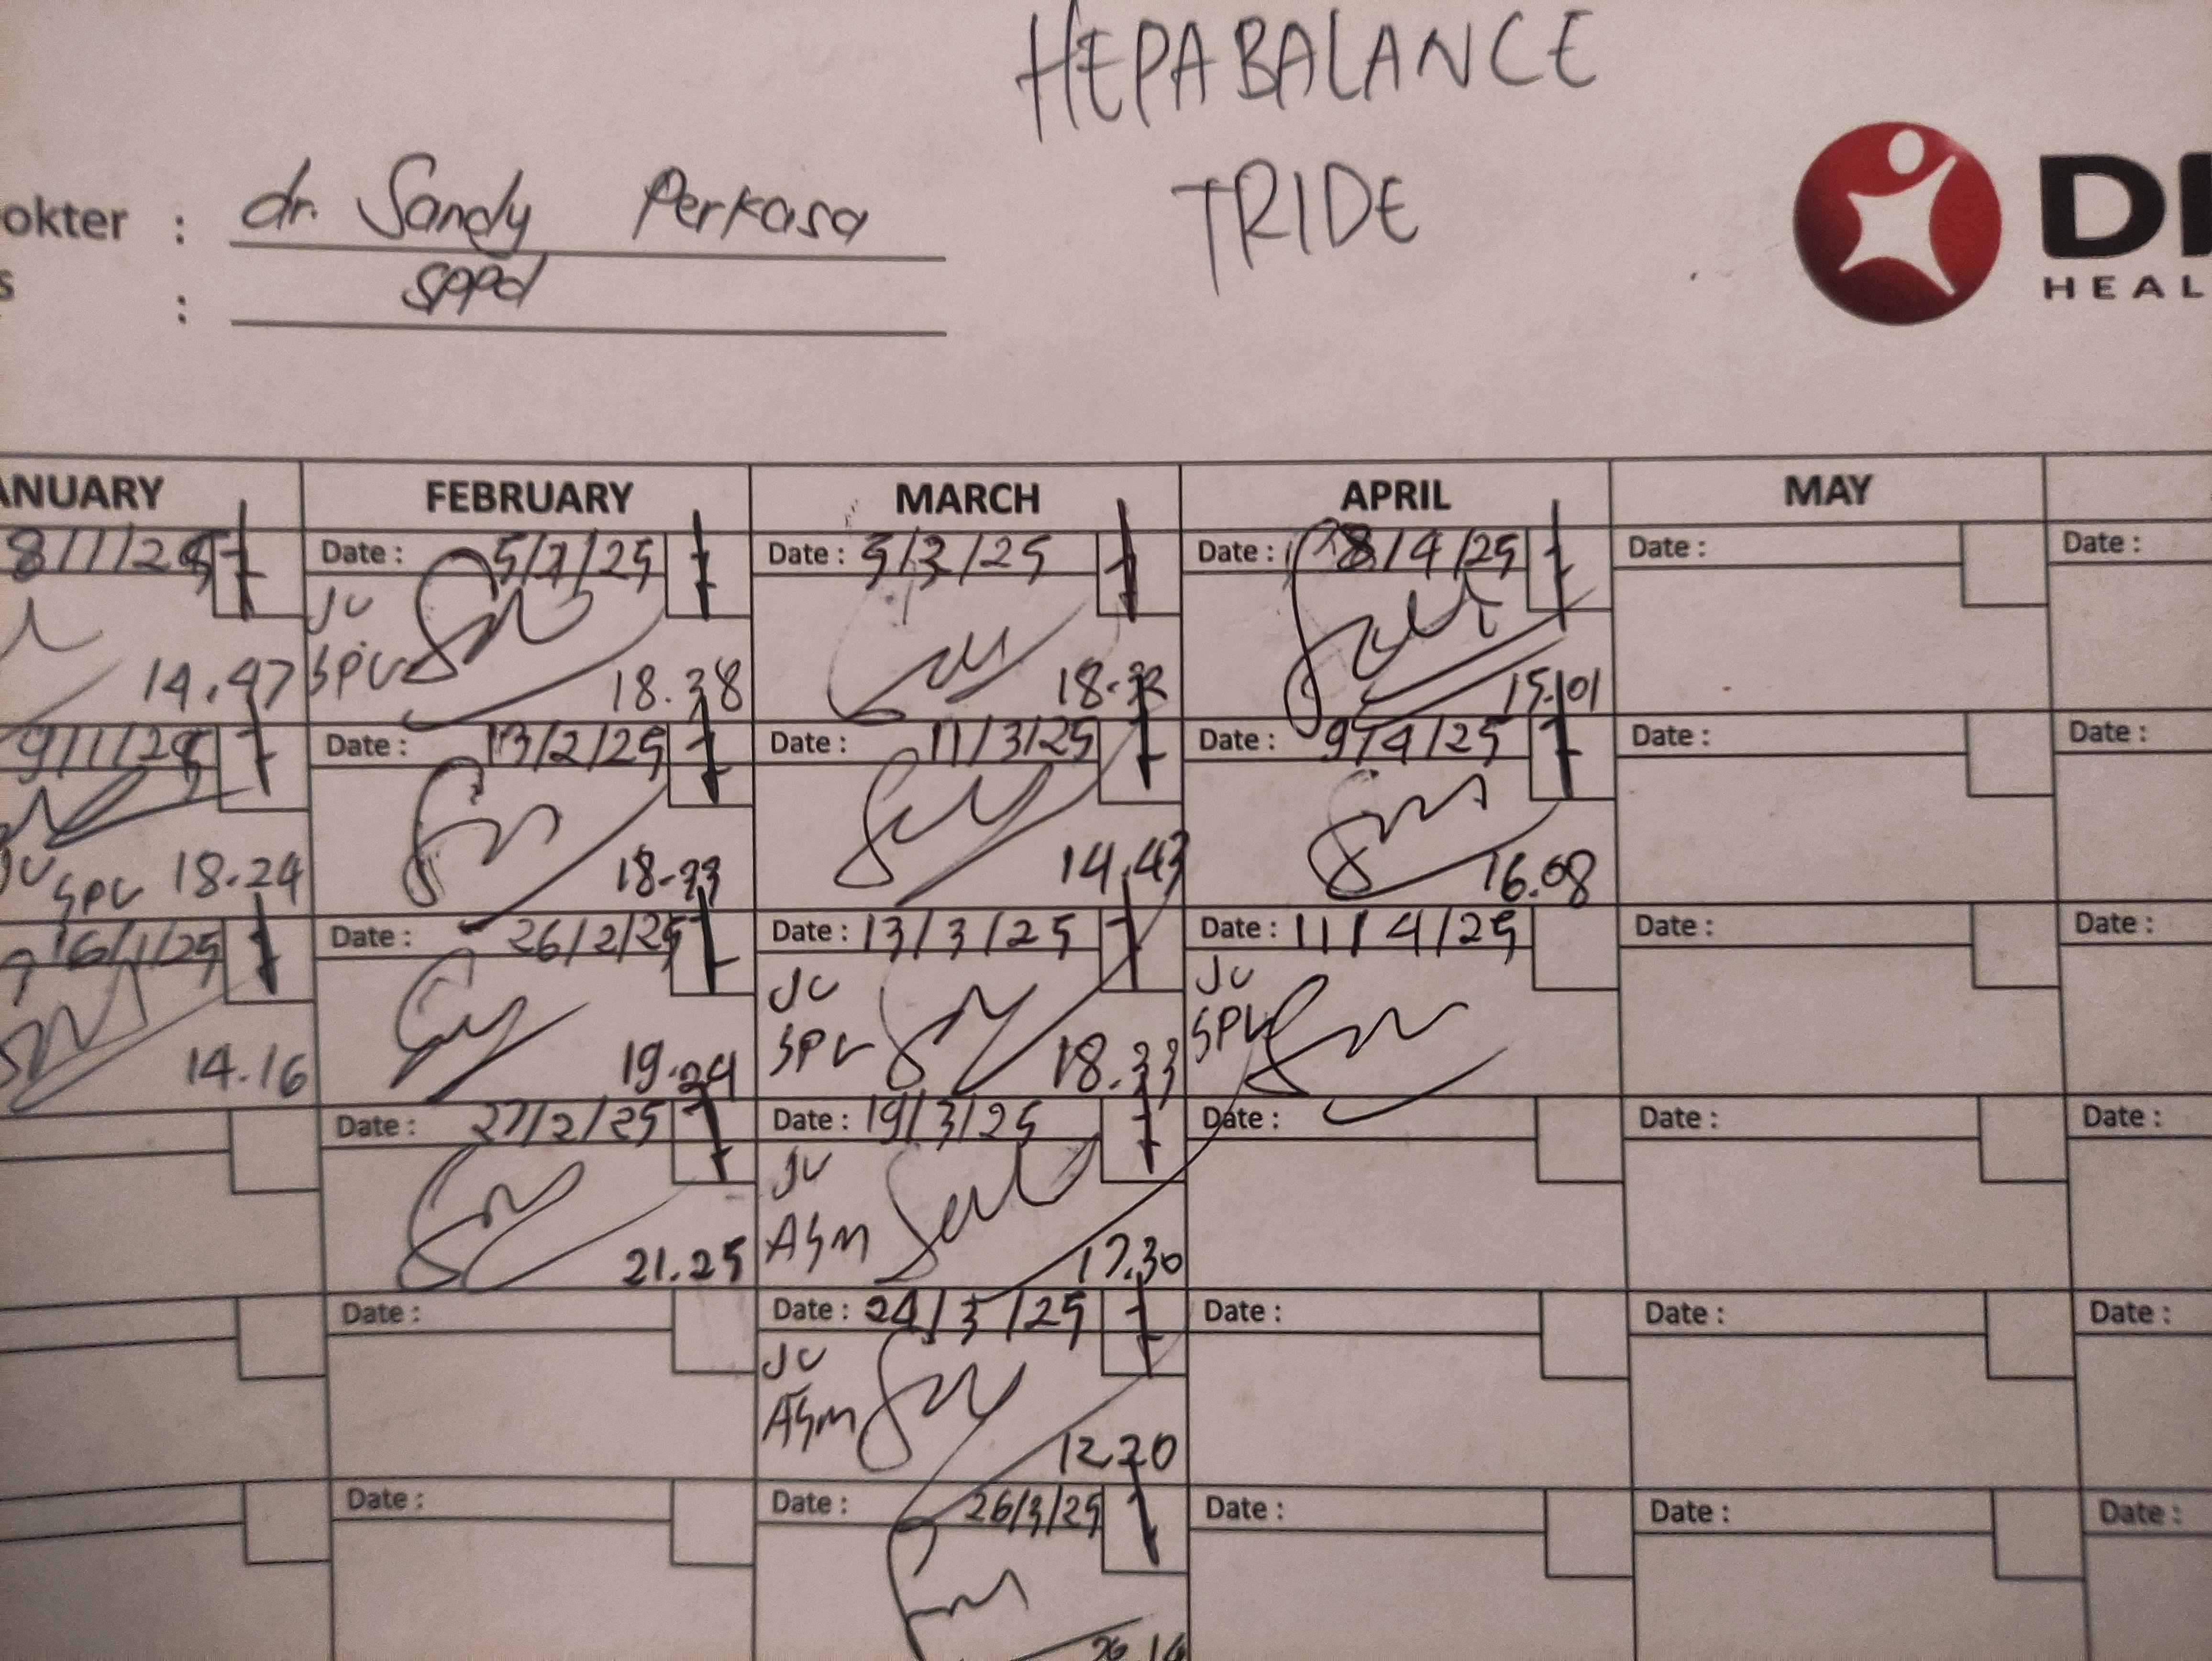 HEPABALANCE
TRIDE
okter : dr. Sandy Perkasa
s : sppd
DI
HEAL
ANUARY FEBRUARY MARCH APRIL MAY
8/1/25 Date : 5/2/25 Date : 5/3/25 Date : 8/4/25 Date : Date :
JV
SPV
14.47 18.38 18.32 15.01
9/1/25 Date : 13/2/25 Date : 11/3/25 Date : 9/4/25 Date : Date :
JV SPV 18.24 18.33 14.43 16.08
16/1/25 Date : 26/2/25 Date : 13/3/25 Date : 11/4/25 Date : Date :
JV JV
SPV SPV
14.16 19.24 18.33
Date : 27/2/25 Date : 19/3/25 Date : Date : Date :
JV
ASM
21.25 17.30
Date : Date : 24/3/25 Date : Date : Date :
JV
ASM
12.20
Date : Date : 26/3/25 Date : Date : Date :